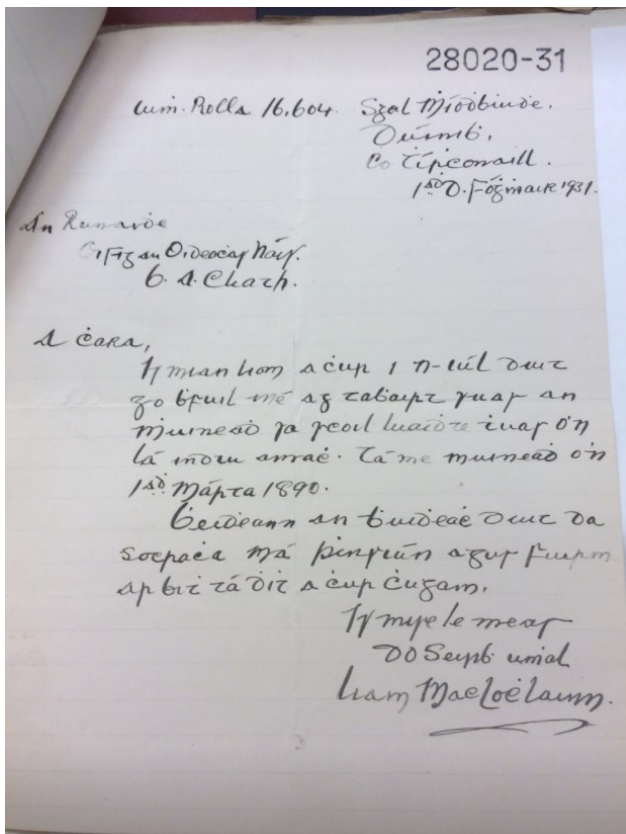 28020-31
Uim. Rolla 16,604. Sgoil
Co Tírconaill.
1aḋ D. Foġmair 1931.
An Runaiḋe
Oifig an Oideaċas Náis.
B. A. Cliath.
A ċara,
Is mian liom a ċur i n-iúl duit
go ḃfuil mé ag taḃairt suas an
ṁuineaḋ sa scoil luaiḋte ṫuas ó'n
lá indiu amaċ. Tá me muineaḋ ó'n
1aḋ Márta 1890.
Beiḋeann an ḃuiḋeaċ duit da
socraċa má ṗinsiún agus fuirm
ar biṫ tá dít a ċur ċugam.
Is mise le meas
Do Seirb. umal
Liam MacLoċlainn.